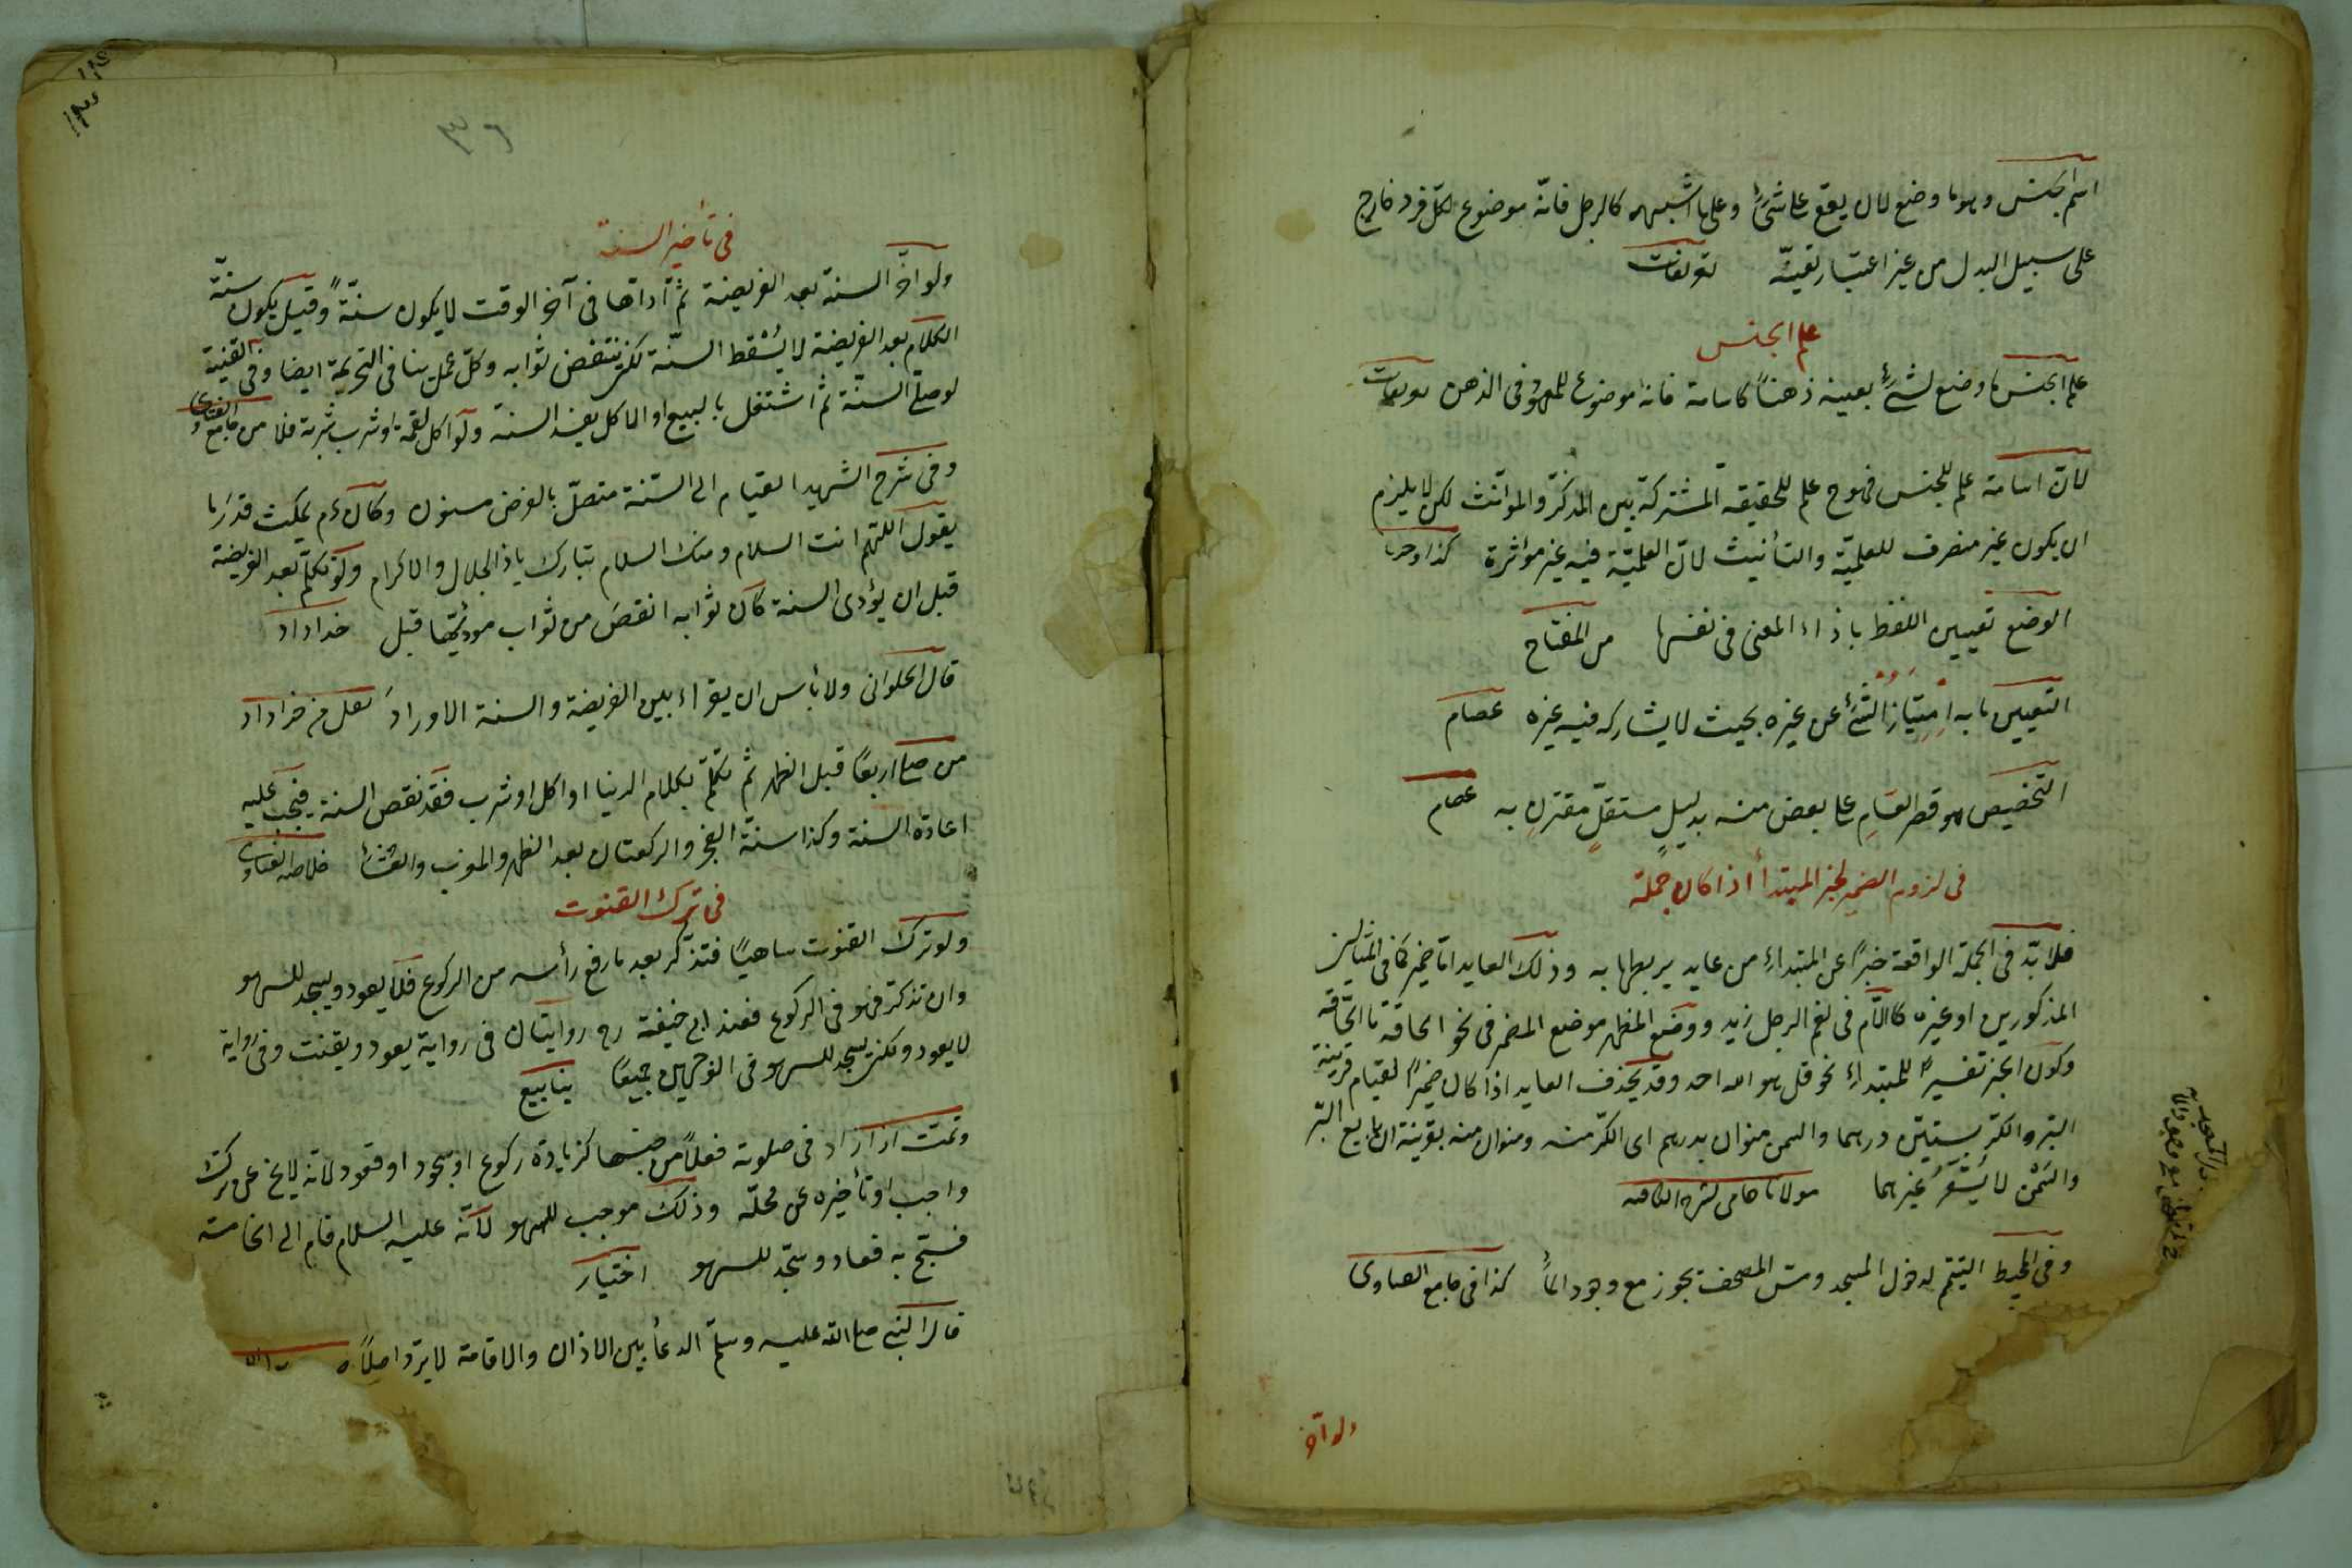 اسم الجنس وهو ما وضع لان يقع على شئ وعلى ما اشبهه كالرجل فانّه موضوع لكل فرد خارج
على سبيل البدل من غير اعتبار تعيّنه تعريفات
علم الجنس
علم الجنس ما وضع لشئ بعينه ذهناً كاسامة فانه موضوع للمعهود فى الذهن تعريفات
لانّ اسامة علم للجنس فهو ح علم للحقيقة المشتركة بين المذكّر والمؤنّث لكن لا يلزم
ان يكون غير منصرف للعلميّة والتأنيث لانّ العلميّة فيه غير مؤثرة
الوضع تعيين اللفظ باذاء المعنى فى نفسها من المفتاح
التعيين ما به امتياز الشئ عن غيره بحيث لا يشاركه فيه غيره عصام
التخصيص هو قصر العام على بعض منه بدليل مستقلّ مقترن به عصام
فى لزوم الضمير لخبر المبتدأ اذا كان جملة
فلا بدّ فى الجملة الواقعة خبراً عن المبتداء من عايد يربطها به وذلك العايد امّا ضمير كما فى المثالين
المذكورين او غيره كاللّام فى نعم الرجل زيد ووضع المظهر موضع المضمر فى نحو الحاقة ما الحاقّة
وكون الخبر تفسيراً للمبتداء نحو قل هو الله احد وقد يحذف العايد اذا كان ضميراً لقيام قرينة
البرّ والكرّ بستّين درهما والسمن منوان بدرهم اى الكرّ منه ومنوان منه بقرينة ان بايع البرّ
والسّمن لا يسعّر غيرهما مولانا جامى لشرح الكافيه
وفى المحيط التيمّم لدخول المسجد ومسّ المصحف يجوز مع وجود الماء كذا فى جامع الفتاوى
ولو اخّر
فى تأخير السنة
ولو اخّر السنة بعد الفريضة ثم أداها فى آخر الوقت لا يكون سنّةً وقيل يكون سنّة
الكلام بعد الفريضة لا يسقط السنّة لكن ينتقض ثوابه وكلّ عمل ينافى التحريمة ايضا وفى القنية
لو صلّى السنّة ثم اشتغل بالبيع او الاكل يعيد السنة ولو اكل لقمة او شرب شربة فلا من جامع الفتاوى
وفى شرح الشهيد القيام الى السّنة متصلّ بالفرض مسنون وكان ءم يمكث قدر ما
يقول اللّهم انت السلام ومنك السلام تباركت يا ذا الجلال والاكرام ولو تكلّم بعد الفريضة
قبل ان يؤدى السنة كان ثوابه انقص من ثواب مؤديّها قبل خداداد
قال الحلوانى ولا بأس ان يقراء بين الفريضة والسنة الاوراد نقل من خداداد
من صلى اربعاً قبل الظهر ثم تكلّم بكلام الدنيا او اكل او شرب فقد نقص السنة فيجب عليه
اعادة السنة وكذا سنّة الفجر والركعتان بعد الظهر والمغرب والعشاء خلاصة الفتاوى
فى ترك القنوت
ولو ترك القنوت ساهياً فتذكّر بعد ما رفع رأسه من الركوع فلا يعود ويسجد للسهو
وان تذكّر فهو فى الركوع فعند ابى حنيفة رح روايتان فى رواية يعود ويقنت وفى رواية
لا يعود ولكن يسجد للسهو فى الوجهين جميعاً ينابيع
وتمّت اذا زاد فى صلوته فعلاً من جنسها كزيادة ركوع او سجود او قعود لانّه لا يخ عن ترك
واجب او تأخيره عن محلّه وذلك موجب للسهو لانّه عليه السلام قام الى الخامسة
فسبّح به فعاد وسجد للسهو اختيار
قال النبى صلى الله عليه وسلّم الدعأ بين الاذان والاقامة لا يردّ اصلاً